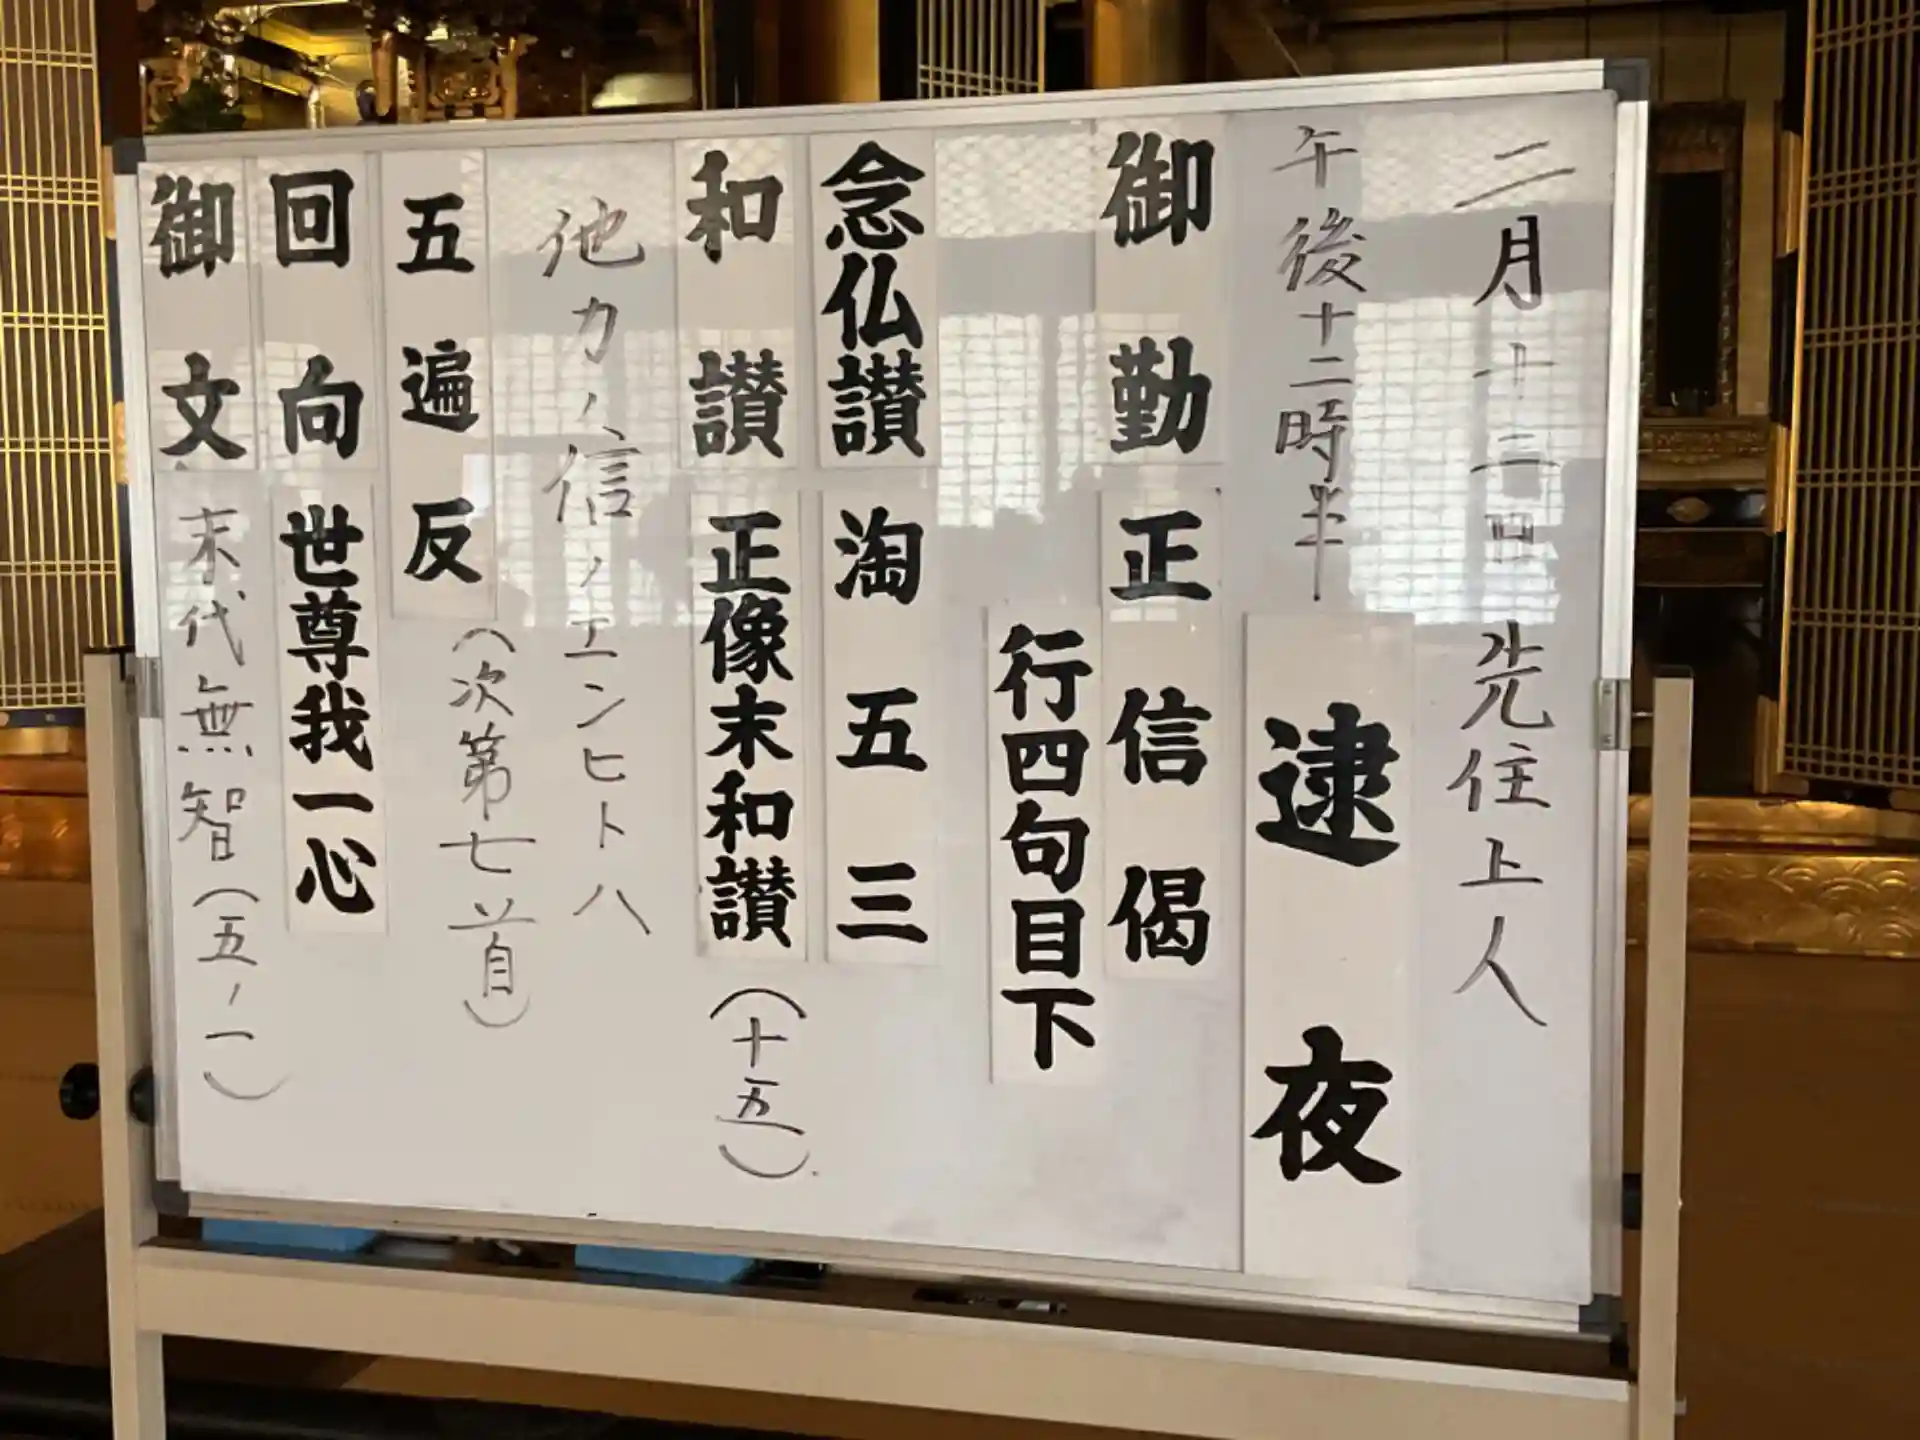 二月十二日 先住上人
午後十二時半
逮夜
御勤 正信偈
行四句目下
念仏讃 淘五三
和讃 正像末和讃（十五）
他力ノ信ノエンヒトハ
五遍反（次第七首）
回向 世尊我一心
御文 末代無智（五ノ一）